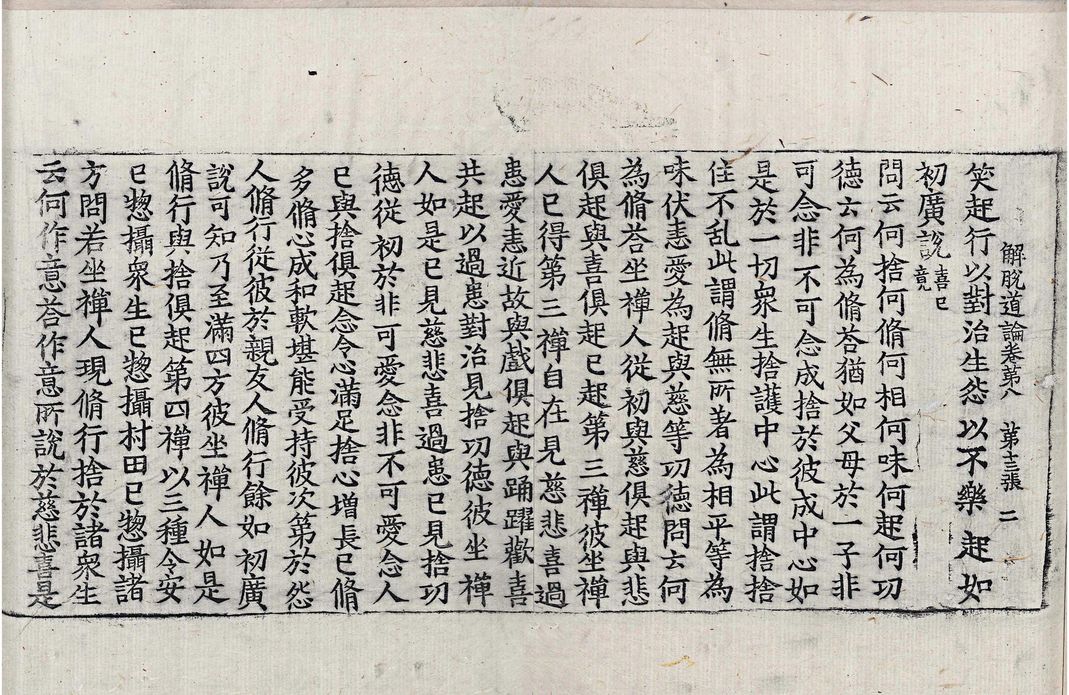 解脫道論卷第八 第十三張 二
笑起行以對治生怨以不樂起如
初廣說喜已竟
問云何捨何脩何相何味何起何功
德云何為脩荅猶如父母於一子非
可念非不可念成捨於彼成中心如
是於一切衆生捨護中心此謂捨捨
住不乱此謂脩無所著為相平等為
味伏恚愛為起與慈等功德問云何
為脩荅坐禪人從初與慈俱起與悲
俱起與喜俱起已起第三禪彼坐禪
人已得第三禪自在見慈悲喜過
患愛恚近故與戲俱起與踊躍歡喜
共起以過患對治見捨功德彼坐禪
人如是已見慈悲喜過患已見捨功
德從初於非可愛念非不可愛念人
已與捨俱起念令心滿足捨心增長已脩
多脩心成和軟堪能受持彼次第於怨
人脩行從彼於親友人脩行餘如初廣
說可知乃至滿四方彼坐禪人如是
脩行與捨俱起第四禪以三種令安
已惣攝衆生已惣攝村田已惣攝諸
方問若坐禪人現脩行捨於諸衆生
云何作意荅作意所說於慈悲喜是